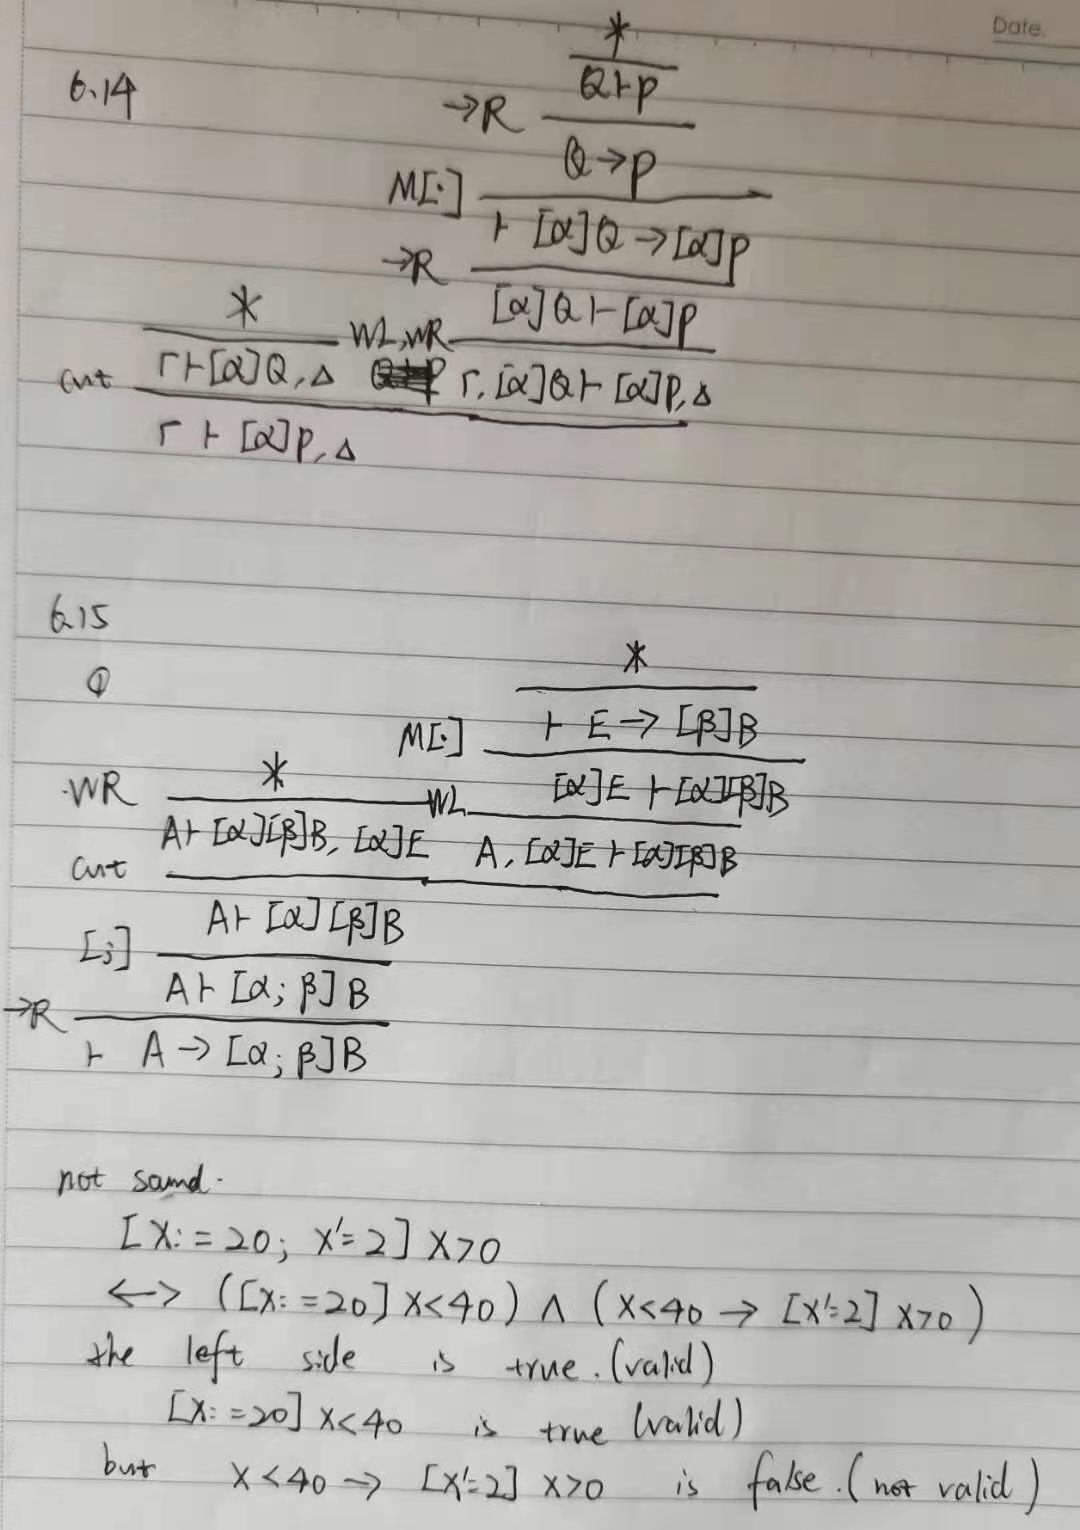 Date.
6.14
*
Q⊢P
→R
Q→P
M[·]
⊢ [α]Q → [α]P
→R
* [α]Q ⊢ [α]P
WL,WR
cut Γ⊢[α]Q, Δ Γ, [α]Q ⊢ [α]P, Δ
Γ ⊢ [α]P, Δ
6.15
①
*
M[·] ⊢ E → [β]B
WR * WL [α]E ⊢ [α][β]B
cut A⊢ [α][β]B, [α]E A, [α]E ⊢ [α][β]B
A⊢ [α][β]B
[;]
A⊢ [α; β] B
→R
⊢ A → [α; β]B
not sound.
[X:=20; X'=2] X>0
<-> ([X:=20] X<40) ∧ (X<40 → [X'=2] X>0)
the left side is true. (valid)
[X:=20] X<40 is true (valid)
but X<40 → [X'=2] X>0 is false. (not valid)